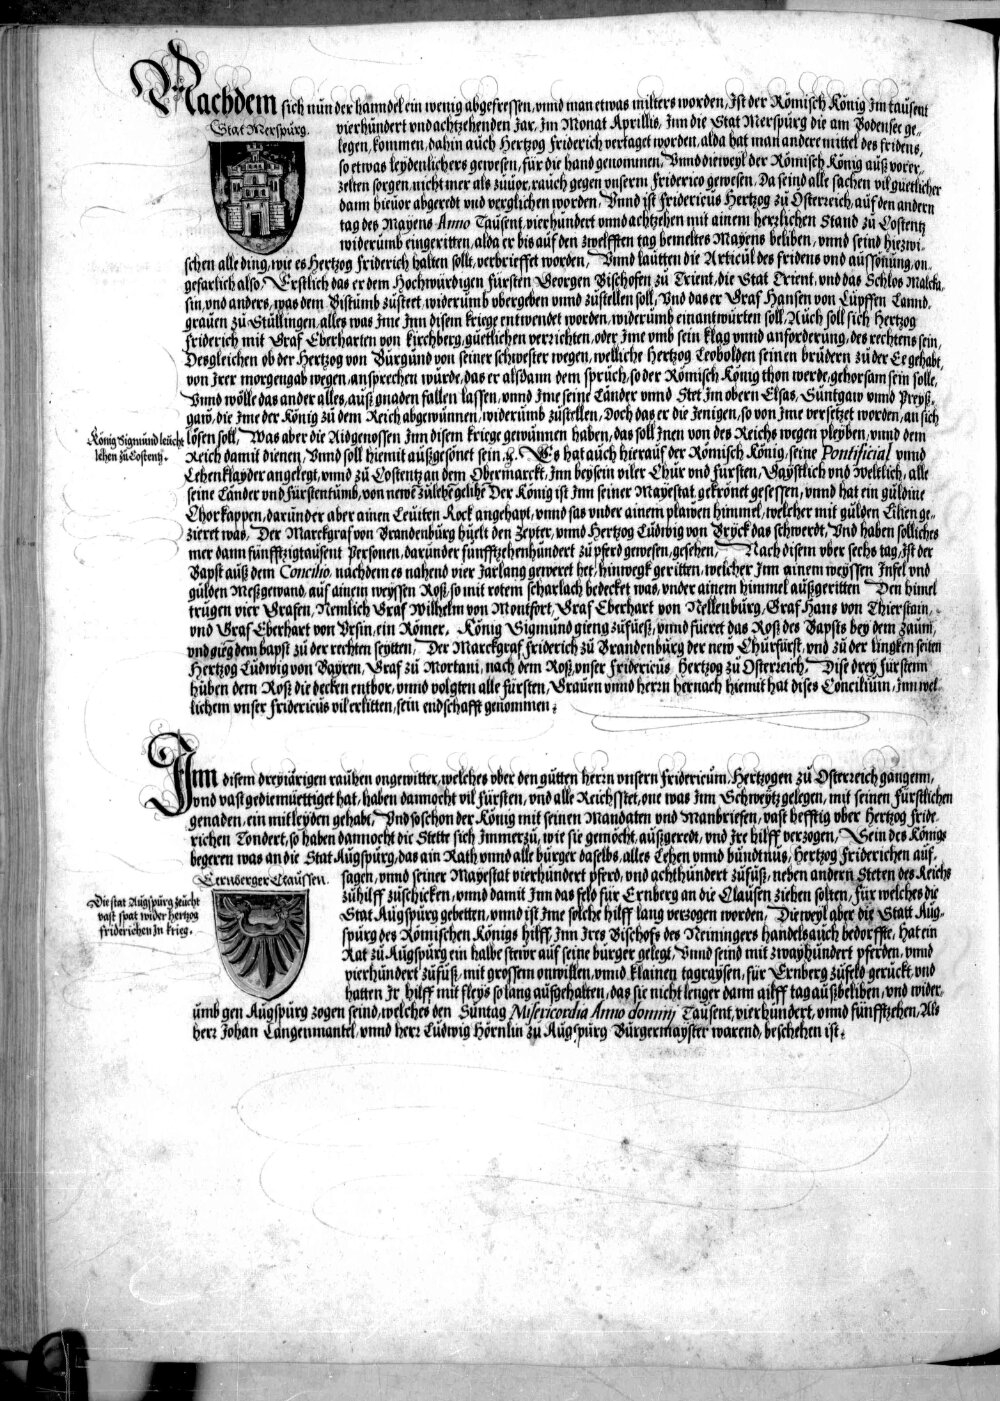 Nachdem sich nun der hanndel ein wenig abgefressen, vnnd man etwas milters worden, Ist der Römisch König Im tausent
Stat Merspurg.
vierhundert vnd achtzehenden Jar, Im Monat Aprillis, Inn die Stat Merspurg die am Bodensee ge-
legen, kommen, dahin auch Hertzog Friderich vertaget worden, alda hat man andere mittel des fridens,
so etwas leydenlichers gewesen, für die hand genommen, Vnnd dieweyl der Römisch König auß vorer-
zelten sorgen, nicht mer als zuuor, rauch gegen vnserm Friderico gewesen, Da seind alle sachen vil guetlicher
dann hieuor abgeredt vnd verglichen worden, Vnnd ist Fridericus Hertzog zu Osterreich, auf den andern
tag des Mayens Anno Tausent, vierhundert vnnd achtzehen mit ainem herzlichen Stand zu Costentz
widerumb eingeritten, alda er bis auf den zwelfften tag bemeltes Mayens beliben, vnnd seind hiezwi-
schen alle ding, wie es Hertzog Friderich halten sollt, verbriefft worden, Vnnd lautten die Articul des fridens vnd aussönung, on-
gefarlich also, Erstlich das er dem Hochwürdigen Fürsten Georgen Bischofen zu Trient, die Stat Trient, vnd das Schlos Malcka-
sin, vnd anders, was dem Bistumb züsteet, widerumb vbergeben vnnd züstellen soll, Vnd das er Graf Hansen von Lüpffen Lannd-
grauen zu Stüllingen, alles was Ime Inn disem kriege entwendet worden, widerumb einantwurten soll, Auch soll sich Hertzog
Friderich mit Graf Eberharten von Kirchberg, guetlichen verrichten, oder Ime vmb sein klag vnnd anforderung, des rechtens sein,
Desgleichen ob der Hertzog von Burgund von seiner schwester wegen, welliche Hertzog Leobolden seinen brudern zu der Ee gehabt,
von Irer morgengab wegen, ansprechen würde, das er alsdann dem spruch, so der Römisch König thon werde, gehorsam sein solle,
Vnnd wölle das ander alles, auß gnaden fallen lassen, vnnd Ime seine Länder vnnd Stet Im obern Elsas, Süntgaw vnnd Preyß-
gaw, die Ime der König zu dem Reich abgewunnen, widerumb züstellen, Doch das er die Jenigen, so von Ime versetzet worden, an sich
König Sigmund leücht
lehen zu Costentz.
lösen soll, Was aber die Aidgenossen Inn disem kriege gewunnen haben, das soll Inen von des Reichs wegen pleyben, vnnd dem
Reich damit dienen, Vnnd soll hiemit außgesönet sein ꝛc. Es hat auch hierauf der Römisch König, seine Pontificial vnnd
Lehenklayder angelegt, vnnd zu Costentz an dem Obermarckt, Inn beysein viler Chur vnd Fürsten, Gaystlich vnd Weltlich, alle
seine Länder vnd Fürstentumb, von newē zulehē gelihē Der König ist Inn seiner Mayestat gekrönet gesessen, vnnd hat ein guldine
Chorkappen, darunder aber ainen Leuiten Rock angehapt, vnnd sas vnder ainem plawen himmel, welcher mit gulden Lilien ge-
zieret was, Der Marckgraf von Brandenburg hüelt den Zepter, vnnd Hertzog Ludwig von Bryck das schwerdt, Vnd haben solliches
mer dann fünfftzigtausent Personen, darunder fünfftzehenhundert zu pferd gewesen, gesehen, Nach disem vber sechs tag, Ist der
Bapst auß dem Concilio, nachdem es nahend vier Jarlang geweret het, hinwegk geritten, welcher Inn ainem weyssen Infel vnd
gulden Meßgewand, auf ainem weyssen Roß, so mit rotem scharlach bedecket was, vnder ainem himmel außgeritten Den himel
trugen vier Grafen, Nemlich Graf Wilhelm von Montfort, Graf Eberhart von Nellenburg, Graf Hans von Thierstain,
vnd Graf Eberhart von Vrsin, ein Römer. König Sigmund gieng zufueß, vnnd fueret das Roß des Bapsts bey dem zaum,
vnd gieng dem bapst zu der rechten seytten, Der Marckgraf Friderich zu Brandenburg der new Churfürst, vnd zu der lingken seiten
Hertzog Ludwig von Bayren, Graf zu Mortani, nach dem Roß, vnser Fridericus Hertzog zu Osterreich, Dise drey Fürstenn
huben dem Roß die decken entbor, vnnd volgten alle Fürsten, Grauen vnnd herrn hernach hiemit hat dises Concilium, Inn wel-
lichem vnser Fridericus vil erlitten, sein endschafft genommen.
Inn disem dreyiärigen rauhen ongewitter, welches vber den gutten herrn vnsern Fridericum, Hertzogen zu Osterreich gangenn,
vnd vast gediemüettiget hat, haben dannocht vil Fürsten, vnd alle Reichsstet, one was Inn Schweytz gelegen, mit seinen Fürstlichen
genaden, ein mitleyden gehabt, Vnd so schon der König mit seinen Mandaten vnd Manbriefen, vast hefftig vber Hertzog Fride-
richen Tondert, so haben dannocht die Stette sich Immerzu, wie sie gemöcht, außgeredt, vnd Ire hilff verzogen, Sein des Königs
begeren was an die Stat Augspurg, das ain Rath vnnd alle burger daselbs, alles Lehen vnnd bündtnus, Hertzog Friderichen auf-
Ernberger Claussen.
sagen, vnnd seiner Mayestat vierhundert pferd, vnd achthundert züfüß, neben andern Steten des Reichs
Die stat Augspurg zeucht
vast spat wider Hertzog
Friderichen In krieg.
zühilff züschicken, vnnd damit Inn das feld für Ernberg an die Clausen ziehen solten, Für welches die
Stat Augspurg gebetten, vnnd ist Ime solche hilff lang verzogen worden, Die weyl aber die Statt Aug-
spurg des Römischen Königs hilff, Inn Ires Bischofs des Neiningers handels auch bedorffte, hat ein
Rat zu Augspurg ein halbe stewr auf seine burger gelegt, Vnnd seind mit zwayhundert pferden, vnnd
vierhundert züfüß, mit grossem onwillen, vnnd klainen tagraysen, für Ernberg züfeld geruckt, vnd
hatten Ir hilff mit fleys so lang aufgehalten, das sie nicht lenger dann ailff tag außbeliben, vnd wider-
umb gen Augspurg zogen seind, welches den Suntag Misericordia Anno domini Tausent, vierhundert, vnnd fünfftzehen, Als
herr Johan Langenmantel, vnnd herr Ludwig Hörnlin zu Augspurg Burgermayster warend, beschehen ist.